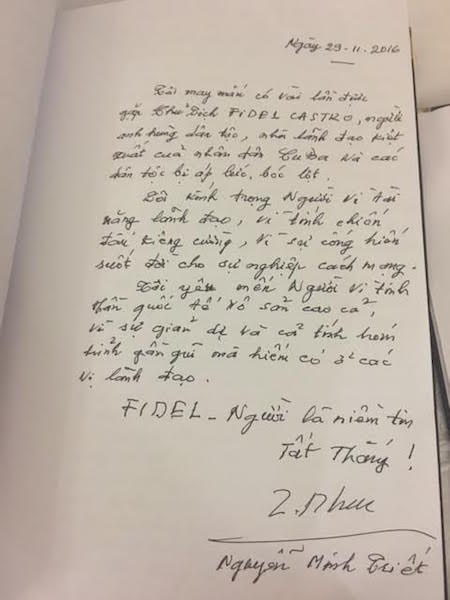 Ngày 29-11-2016
Tôi may mắn có vài lần được
gặp Chủ Tịch FIDEL CASTRO, người
anh hùng dân tộc, nhà lãnh đạo kiệt
xuất của nhân dân CuBa và các
dân tộc bị áp bức, bóc lột.
Tôi kính trọng Người vì tài
năng lãnh đạo, vì tính chiến
đấu kiên cường, vì sự cống hiến
suốt đời cho sự nghiệp cách mạng.
Tôi yêu mến Người vì tinh
thần quốc tế vô sản cao cả,
vì sự giản dị và cả tính hóm
hỉnh gần gũi mà hiếm có ở các
vị lãnh đạo.
FIDEL - Người là niềm tin
Tất Thắng!
Nguyễn Minh Triết